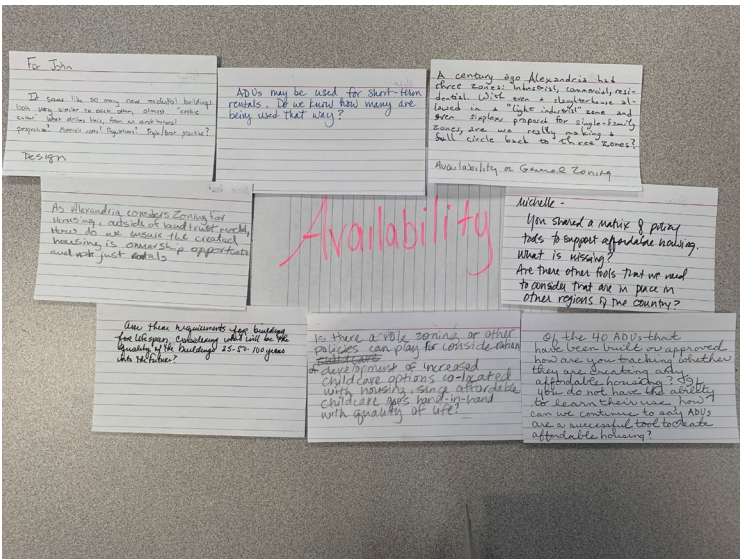 For John
It seems like so many new residential buildings
look very similar to each other, almost "cookie
cutter." What drives this, from an architectural
perspective? Materials costs? Regulations? Style/best practice?
Design
ADUs may be used for short-term
rentals. Do we know how many are
being used that way?
A century ago Alexandria had
three zones: Industrial, commercial, resi-
dential. With even a slaughterhouse al-
lowed in a "light industrial" zone and
even simpler proposed for single-family
zones, are we really making a
full circle back to three zones?
Availability or General Zoning
As Alexandria considers Zoning for
Housing, outside of land trust model,
How do we ensure the created
housing is ownership opportunities
and not just rentals
Availability
Michelle -
You shared a matrix of policy
tools to support affordable housing.
What is missing?
Are there other tools that we need
to consider that are in place in
other regions of the country?
Are there requirements for building
for lifespan, considering what will be the
quality of the buildings 25-50-100 years
into the future?
Is there a role zoning or other
policies can play for consideration
of development of increased
childcare options co-located
with housing, since affordable
childcare goes hand-in-hand
with quality of life?
Of the 40 ADUs that
have been built or approved
how are you tracking whether
they are creating any
affordable housing? If
you do not have the ability
to learn their use, how
can we continue to say ADUs
are a successful tool to create
affordable housing?